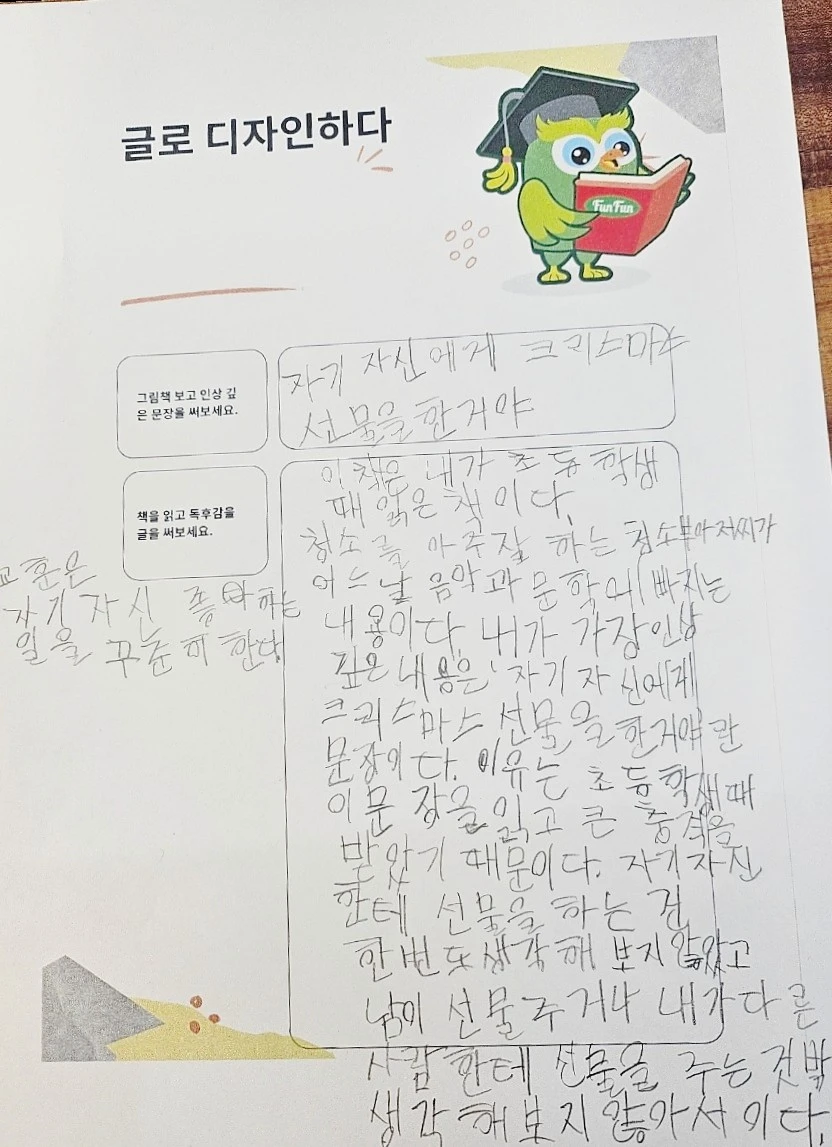 글로 디자인하다
FunFun
그림책 보고 인상 깊
은 문장을 써보세요.
자기 자신에게 크리스마스
선물을한거야
책을 읽고 독후감을
글을 써보세요.
이 책은 내가 초등학생
때 읽은 책이다.
청소를 아주잘 하는 청소부아저씨가
어느날 음악과 문학에 빠지는
내용이다. 내가 가장인상
깊은 내용은 '자기 자신에게
크리스마스 선물을 한거야'란
문장이다. 이유는 초등학생때
이문장을 읽고 큰 충격을
받았기 때문이다. 자기자신
한테 선물을 하는 건
한번도 생각해 보지 않았고
남이 선물주거나 내가 다른
사람한테 선물을 주는 것밖
생각해보지 않아서 이다.
교훈은
자기 자신 좋아하는
일을 꾸준히 한다